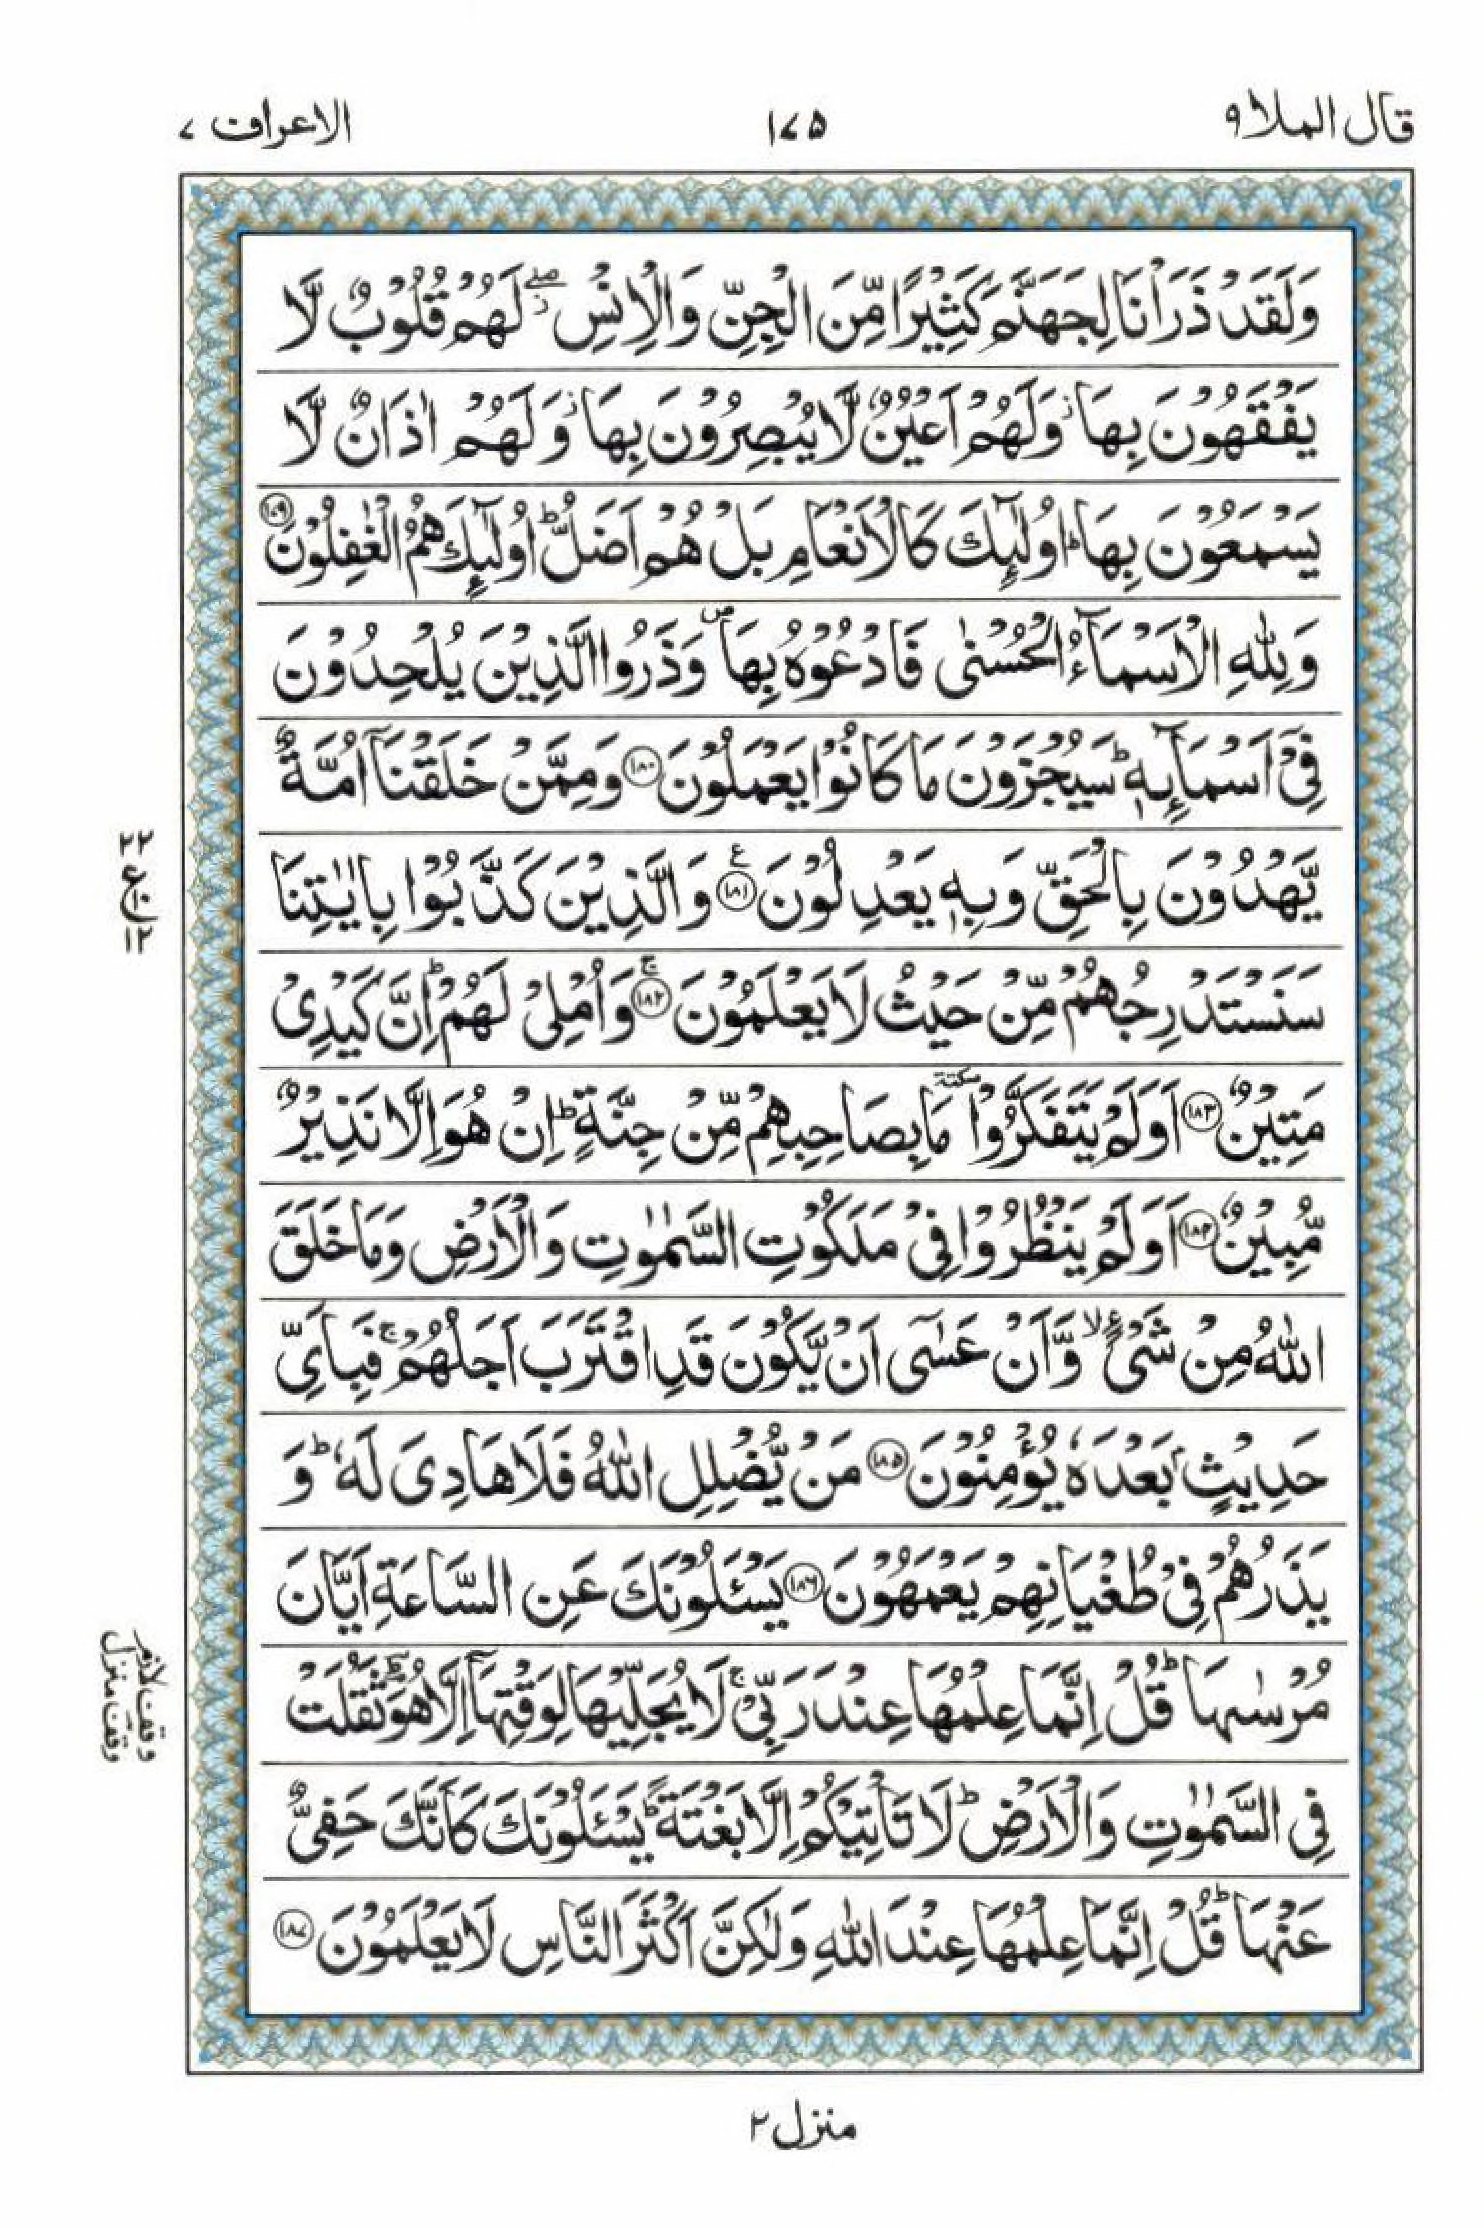 قال الملا ٩
١٧٥
الاعراف ٧
وَلَقَدْ ذَرَاْنَا لِجَهَنَّمَ كَثِيْرًا مِّنَ الْجِنِّ وَالْاِنْسِ ۖ ز لَهُمْ قُلُوْبٌ لَّا
يَفْقَهُوْنَ بِهَا ز وَلَهُمْ اَعْيُنٌ لَّا يُبْصِرُوْنَ بِهَا ز وَلَهُمْ اٰذَانٌ لَّا
يَسْمَعُوْنَ بِهَا ؕ اُولٰٓئِكَ كَالْاَنْعَامِ بَلْ هُمْ اَضَلُّ ؕ اُولٰٓئِكَ هُمُ الْغٰفِلُوْنَ ١٧٩
وَلِلّٰهِ الْاَسْمَآءُ الْحُسْنٰى فَادْعُوْهُ بِهَا ص وَذَرُوا الَّذِيْنَ يُلْحِدُوْنَ
فِيْٓ اَسْمَآئِهٖ ؕ سَيُجْزَوْنَ مَا كَانُوْا يَعْمَلُوْنَ ١٨٠ وَمِمَّنْ خَلَقْنَآ اُمَّةٌ
يَّهْدُوْنَ بِالْحَقِّ وَبِهٖ يَعْدِلُوْنَ ١٨١ ع وَالَّذِيْنَ كَذَّبُوْا بِاٰيٰتِنَا
٢٢
ع
١٢
سَنَسْتَدْرِجُهُمْ مِّنْ حَيْثُ لَا يَعْلَمُوْنَ ١٨٢ ج وَاُمْلِيْ لَهُمْ ؕ اِنَّ كَيْدِيْ
مَتِيْنٌ ١٨٣ اَوَلَمْ يَتَفَكَّرُوْا سكتة مَا بِصَاحِبِهِمْ مِّنْ جِنَّةٍ ؕ اِنْ هُوَ اِلَّا نَذِيْرٌ
مُّبِيْنٌ ١٨٤ اَوَلَمْ يَنْظُرُوْا فِيْ مَلَكُوْتِ السَّمٰوٰتِ وَالْاَرْضِ وَمَا خَلَقَ
اللّٰهُ مِنْ شَيْءٍ لا وَّاَنْ عَسٰٓى اَنْ يَّكُوْنَ قَدِ اقْتَرَبَ اَجَلُهُمْ ج فَبِاَيِّ
حَدِيْثٍۭ بَعْدَهٗ يُؤْمِنُوْنَ ١٨٥ مَنْ يُّضْلِلِ اللّٰهُ فَلَا هَادِيَ لَهٗ ؕ وَ
يَذَرُهُمْ فِيْ طُغْيَانِهِمْ يَعْمَهُوْنَ ١٨٦ يَسْـَٔلُوْنَكَ عَنِ السَّاعَةِ اَيَّانَ
مُرْسٰىهَا ؕ قُلْ اِنَّمَا عِلْمُهَا عِنْدَ رَبِّيْ ج لَا يُجَلِّيْهَا لِوَقْتِهَآ اِلَّا هُوَ ؔؕ ثَقُلَتْ
وقف لازم
وقف منزل
فِي السَّمٰوٰتِ وَالْاَرْضِ ؕ لَا تَاْتِيْكُمْ اِلَّا بَغْتَةً ؕ يَسْـَٔلُوْنَكَ كَاَنَّكَ حَفِيٌّ
عَنْهَا ؕ قُلْ اِنَّمَا عِلْمُهَا عِنْدَ اللّٰهِ وَلٰكِنَّ اَكْثَرَ النَّاسِ لَا يَعْلَمُوْنَ ١٨٧
منزل ٢